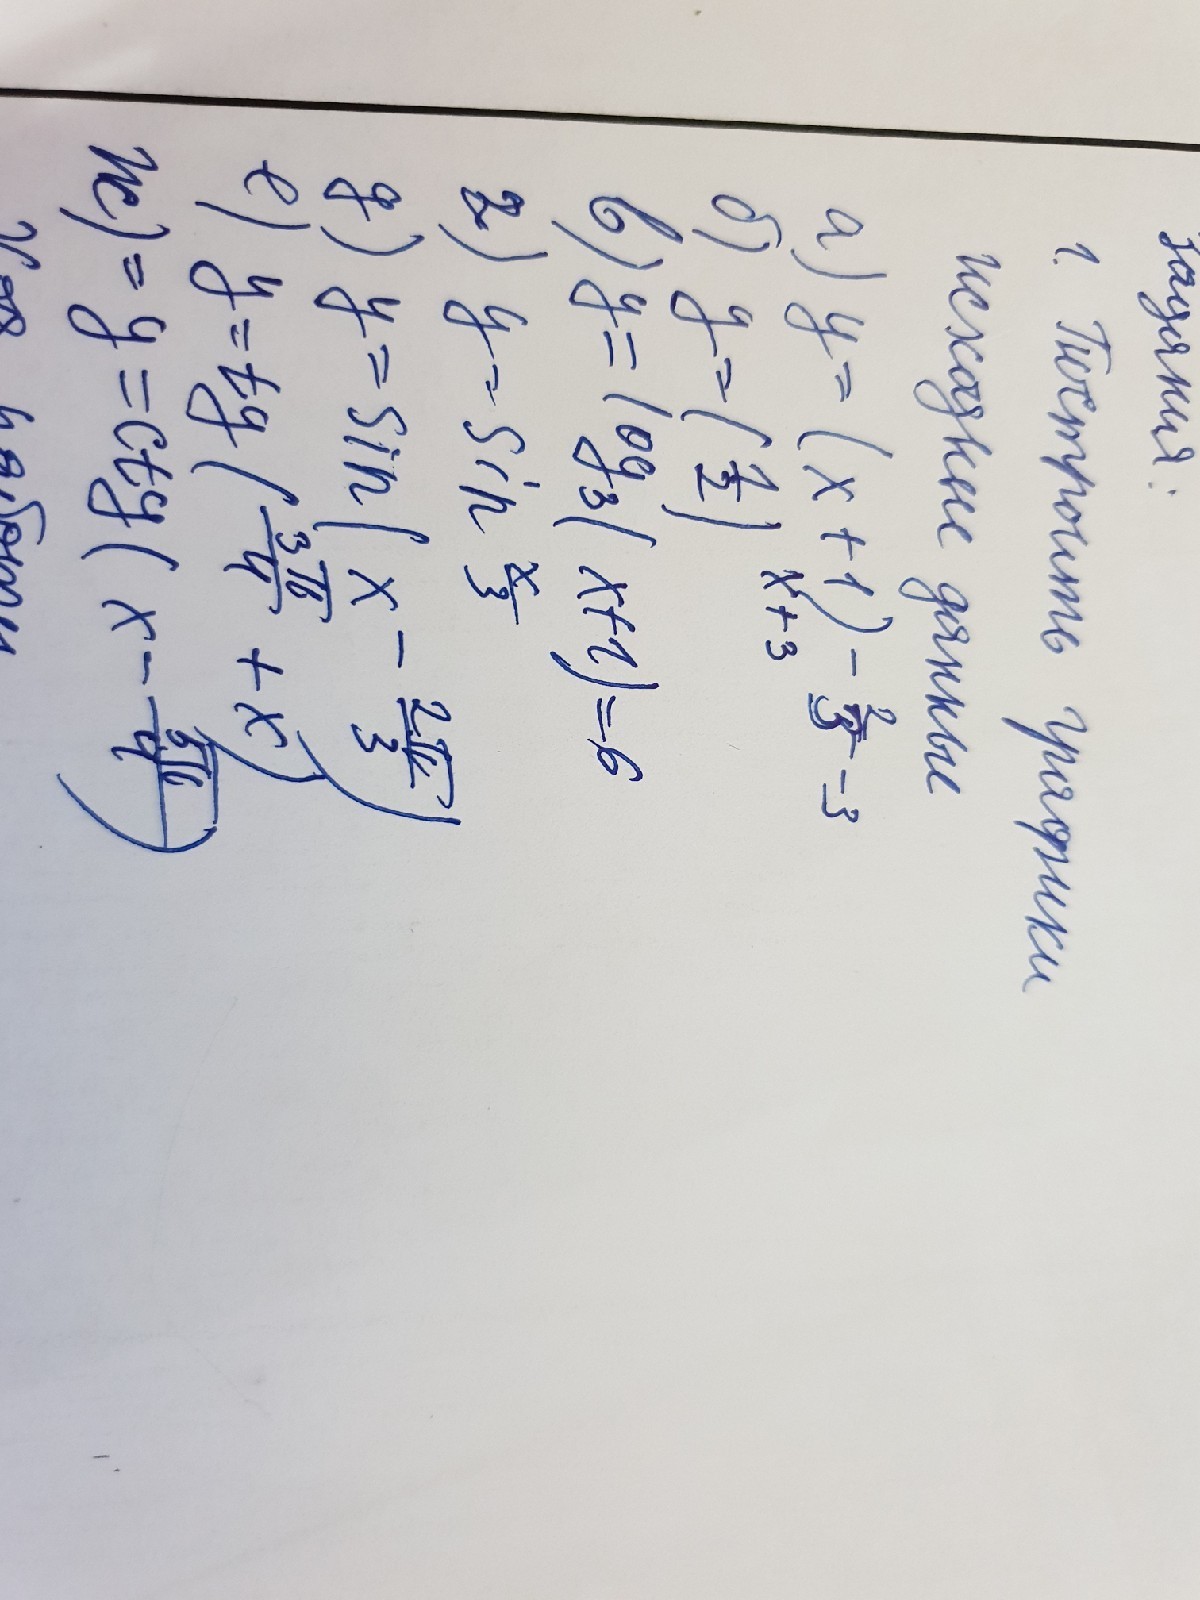 Задания:
1. Построить графики
исходные данные
а) y = (x + 1) - - 3
б) y = (1/2)^x+3
в) y = log₃(x+1) = 6
г) y = Sin x/3
д) y = Sin(x - 2π/3)
е) y = tg(3π/4 + x)
ж) = y = ctg(x - 5π/4)
работы